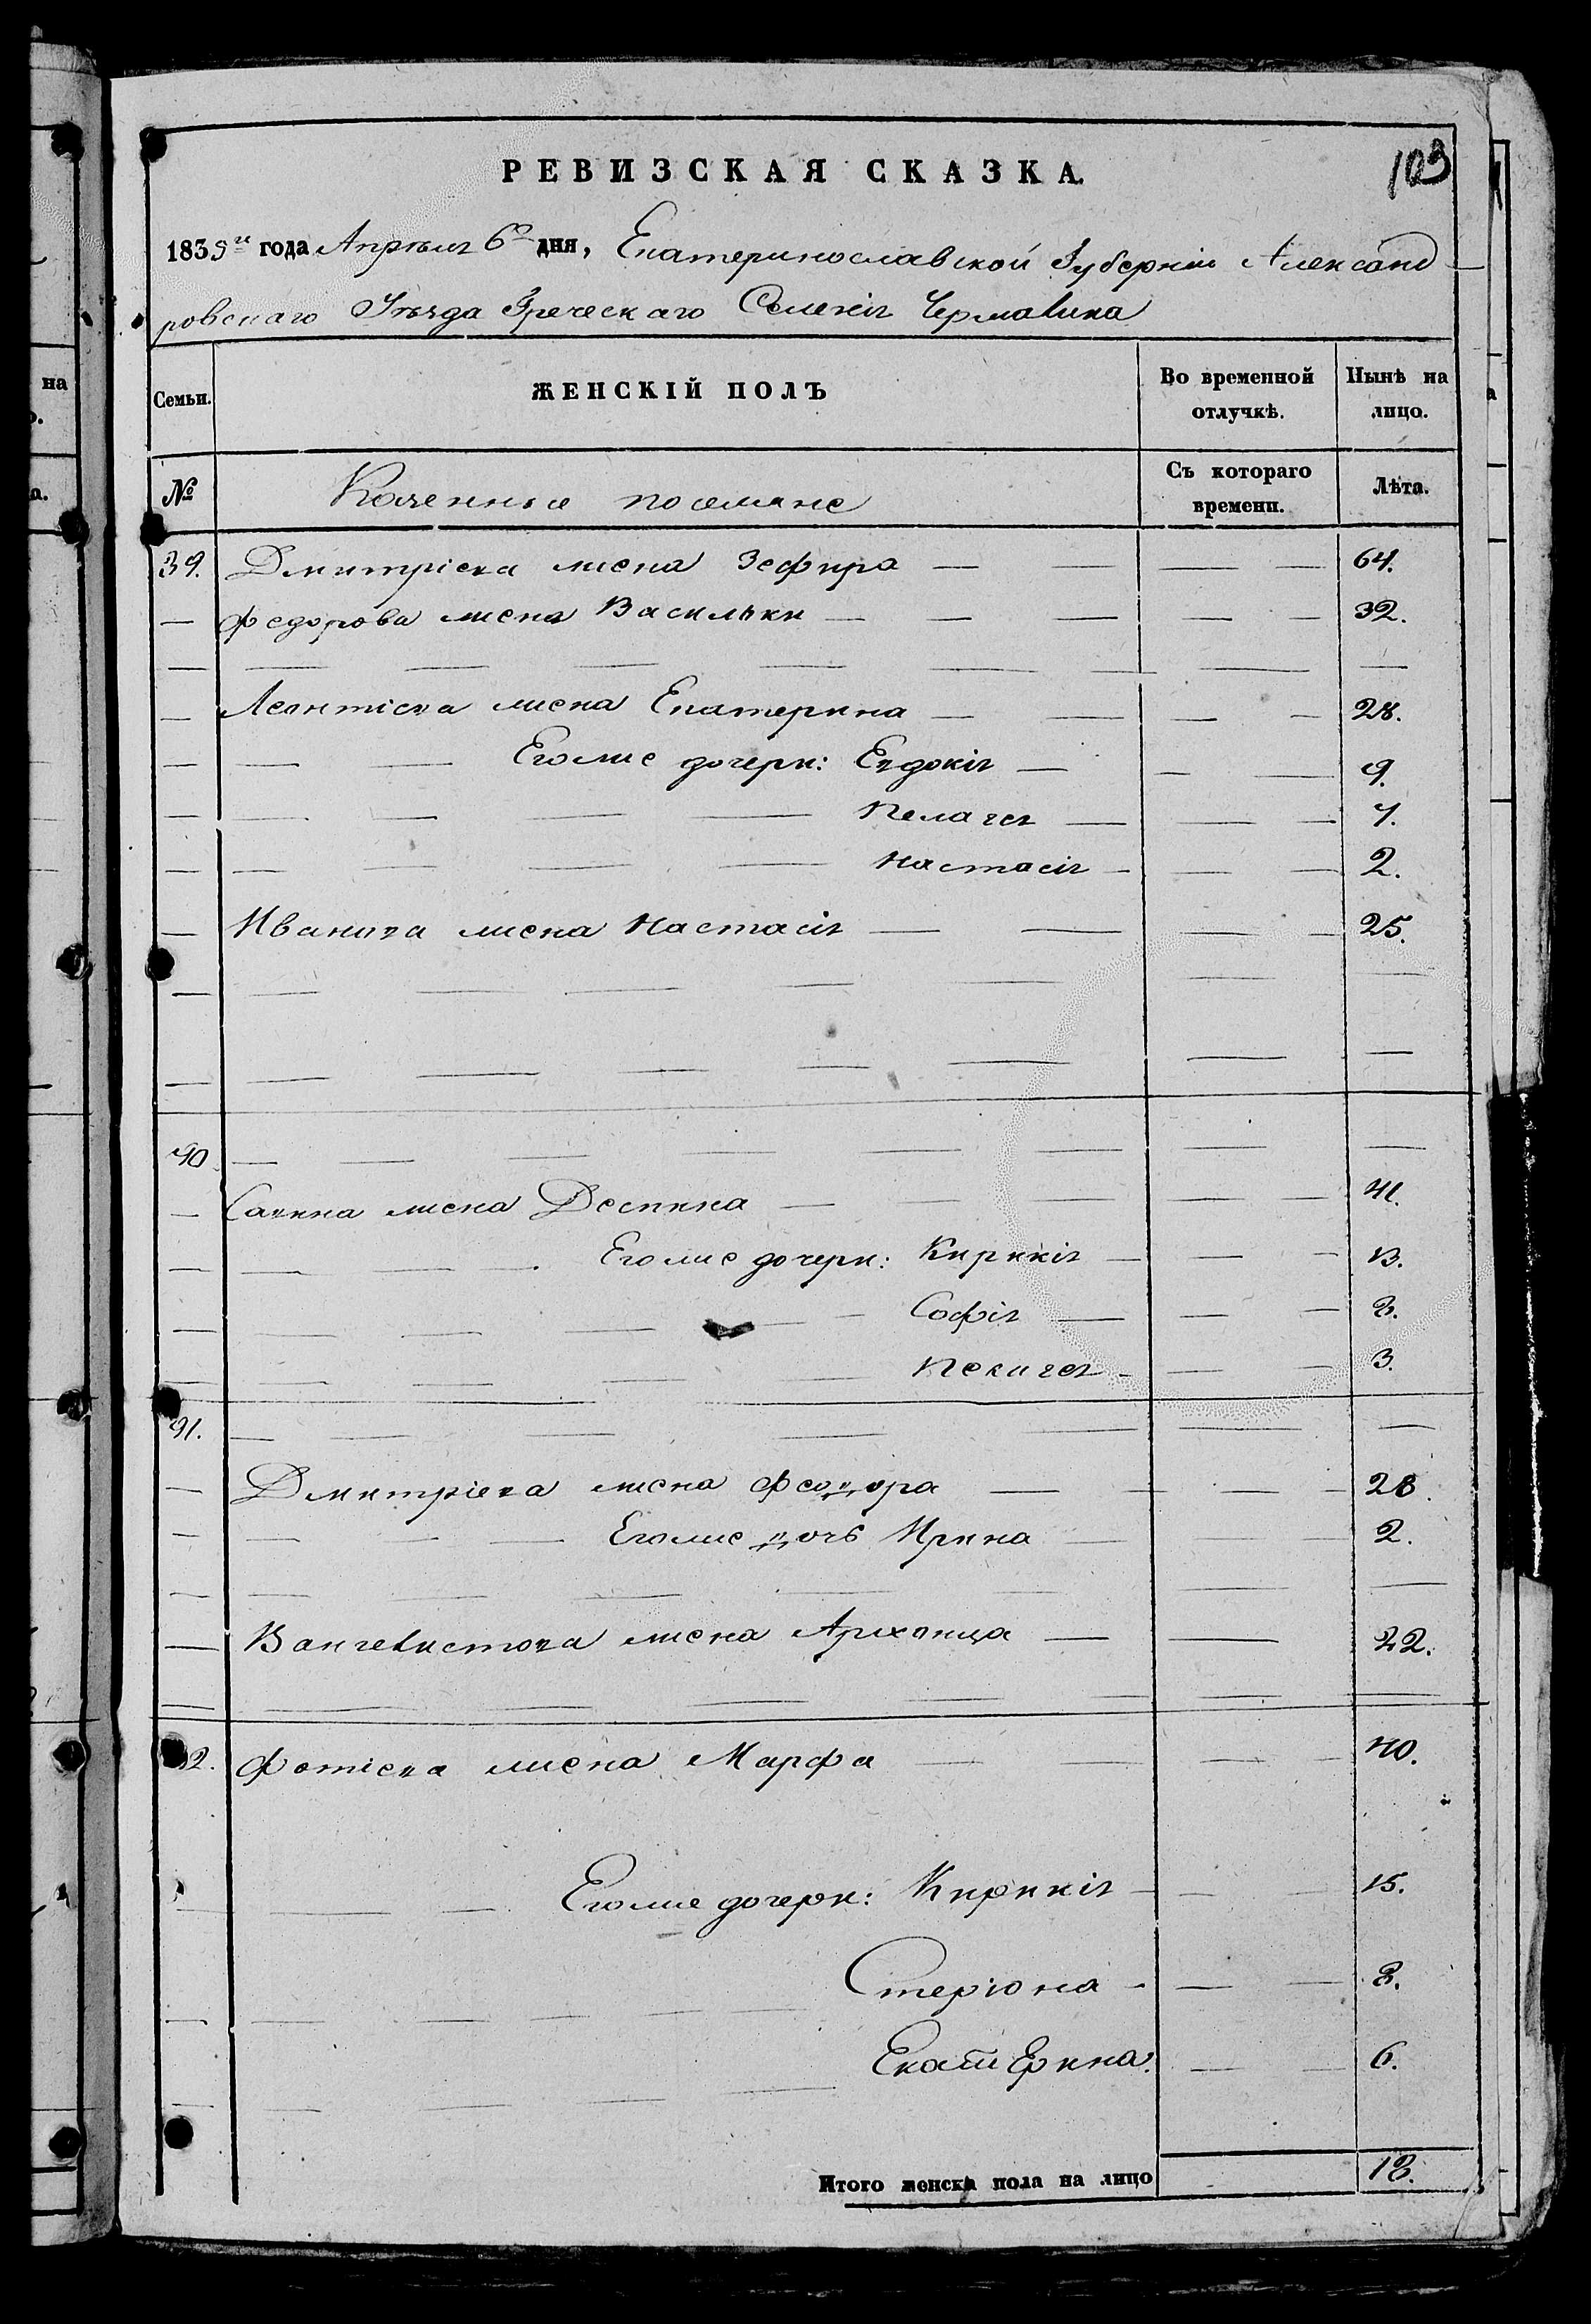 РЕВИЗСКАЯ СКАЗКА.
103
1835го года Апрѣля 6го дня, Екатеринославской Губерніи Александ-
ровскаго Уѣзда Греческаго Селенія Чермалика
Семьи.
ЖЕНСКІЙ ПОЛЪ
Во временной отлучкѣ.
Нынѣ на лицо.
№
Казенные поселяне
Съ котораго времени.
Лѣта.
39. Дмитріева жена Зефира — — — — 64.
— Федорова жена Васильки — — — — — 32.
— Леонтіева жена Екатерина — — — — 28.
— — — Егоже дочери: Евдокія — — — 9.
— — — — Пелагея — — — 4.
— — — — Настасія — — — 2.
— Иванова жена Настасія — — — — 25.
40.
— Савина жена Деспина — — — — — 41.
— — — — Егоже дочери: Кирикія — — — 13.
— — — — — Софія — — — 8.
— — — — — Пелагея — — — 3.
41.
— Дмитріева жена Феодора — — — — 28.
— — — — Егоже дочь Ирина — — — 2.
— Вангелистова жена Архонца — — 22.
42. Фотіева жена Марфа — — — — 40.
— — Егоже дочери: Кирикія — — — 15.
Стеріона — — — 8.
Екатерина. — — 6.
Итого женска пола на лицо 18.